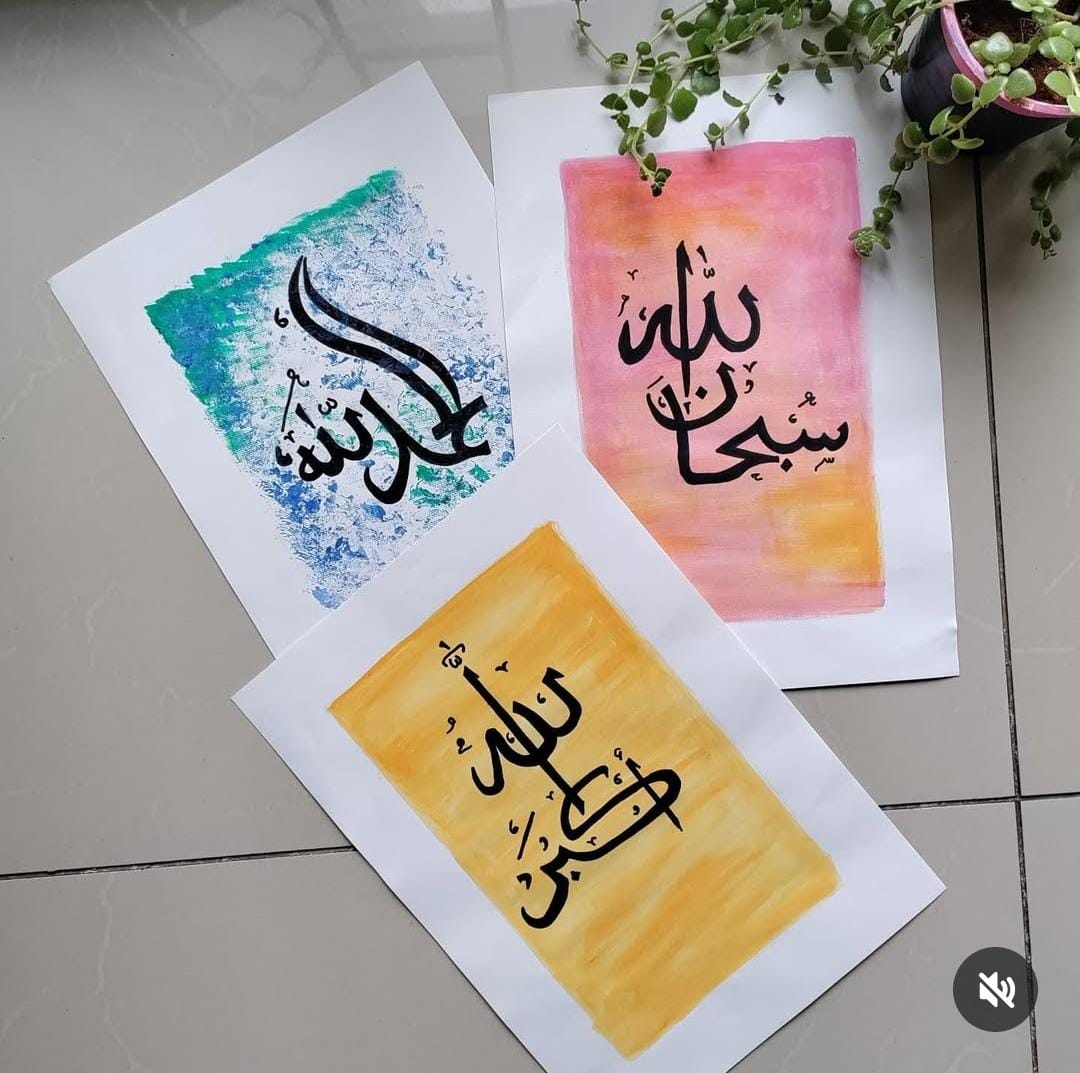 الحمد لله
سُبْحَانَ
اللّٰه
اللّٰهُ
أَكْبَر